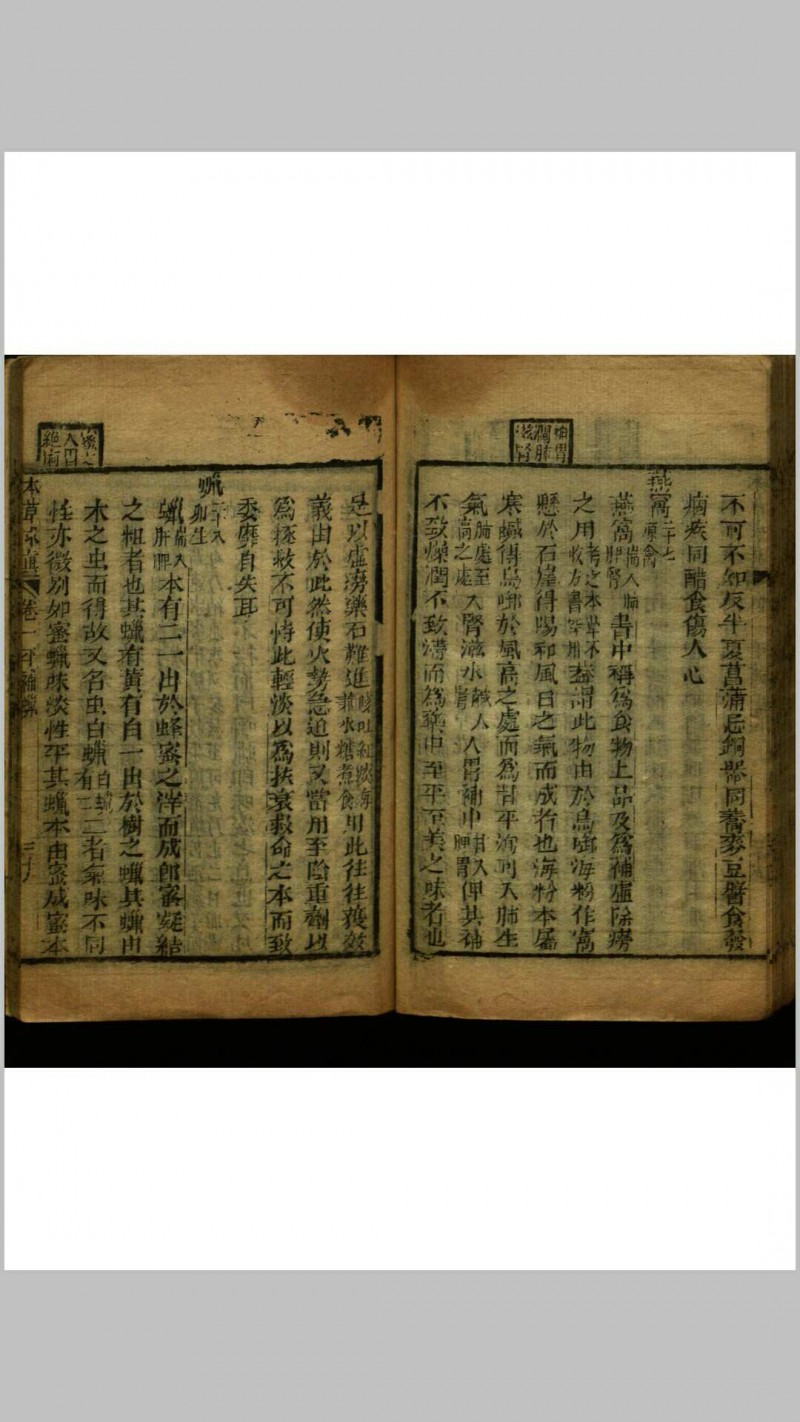 補胃
潤肺
滋腎
不可不知反半夏菖蒲忌銅器同蕎麥豆醬食發
痼疾同醋食傷人心
燕窩二十七
原禽
燕窩耑入肺
胃腎書中稱爲食物上品及爲補虛除癆
之用考之本草不
收方書罕用葢謂此物由於鳥啣海粉作窩
懸於石崖得陽和風日之氣而成者也海粉本屬
寒鹹得鳥啣於風高之處而爲甘平淪可入肺生
氣肺處至
高之處入腎滋水鹹入
腎入胃補中甘入
脾胃俾其補
不致燥潤不致滯而爲藥中至平至美之味者也
是以虛癆藥石難進用此往往獲效
義由於此然使火勢急迫則又當用至陰重劑以
爲拯救不可恃此輕淡以爲扶衰救命之本而致
委靡自失耳
蠟二十八
卵生
蠟耑入
肝脾本有二一出於蜂蜜之滓而成卽蜜凝結
之粗者也其蠟有黃有白一出於樹之蠟其蠟由
木之虫而得故又名虫白蠟白蠟
有二二者氣味不同
性亦微別如蜜蠟味淡性平其蠟本由蜜成蜜本
本草求真 卷一平補 三十八